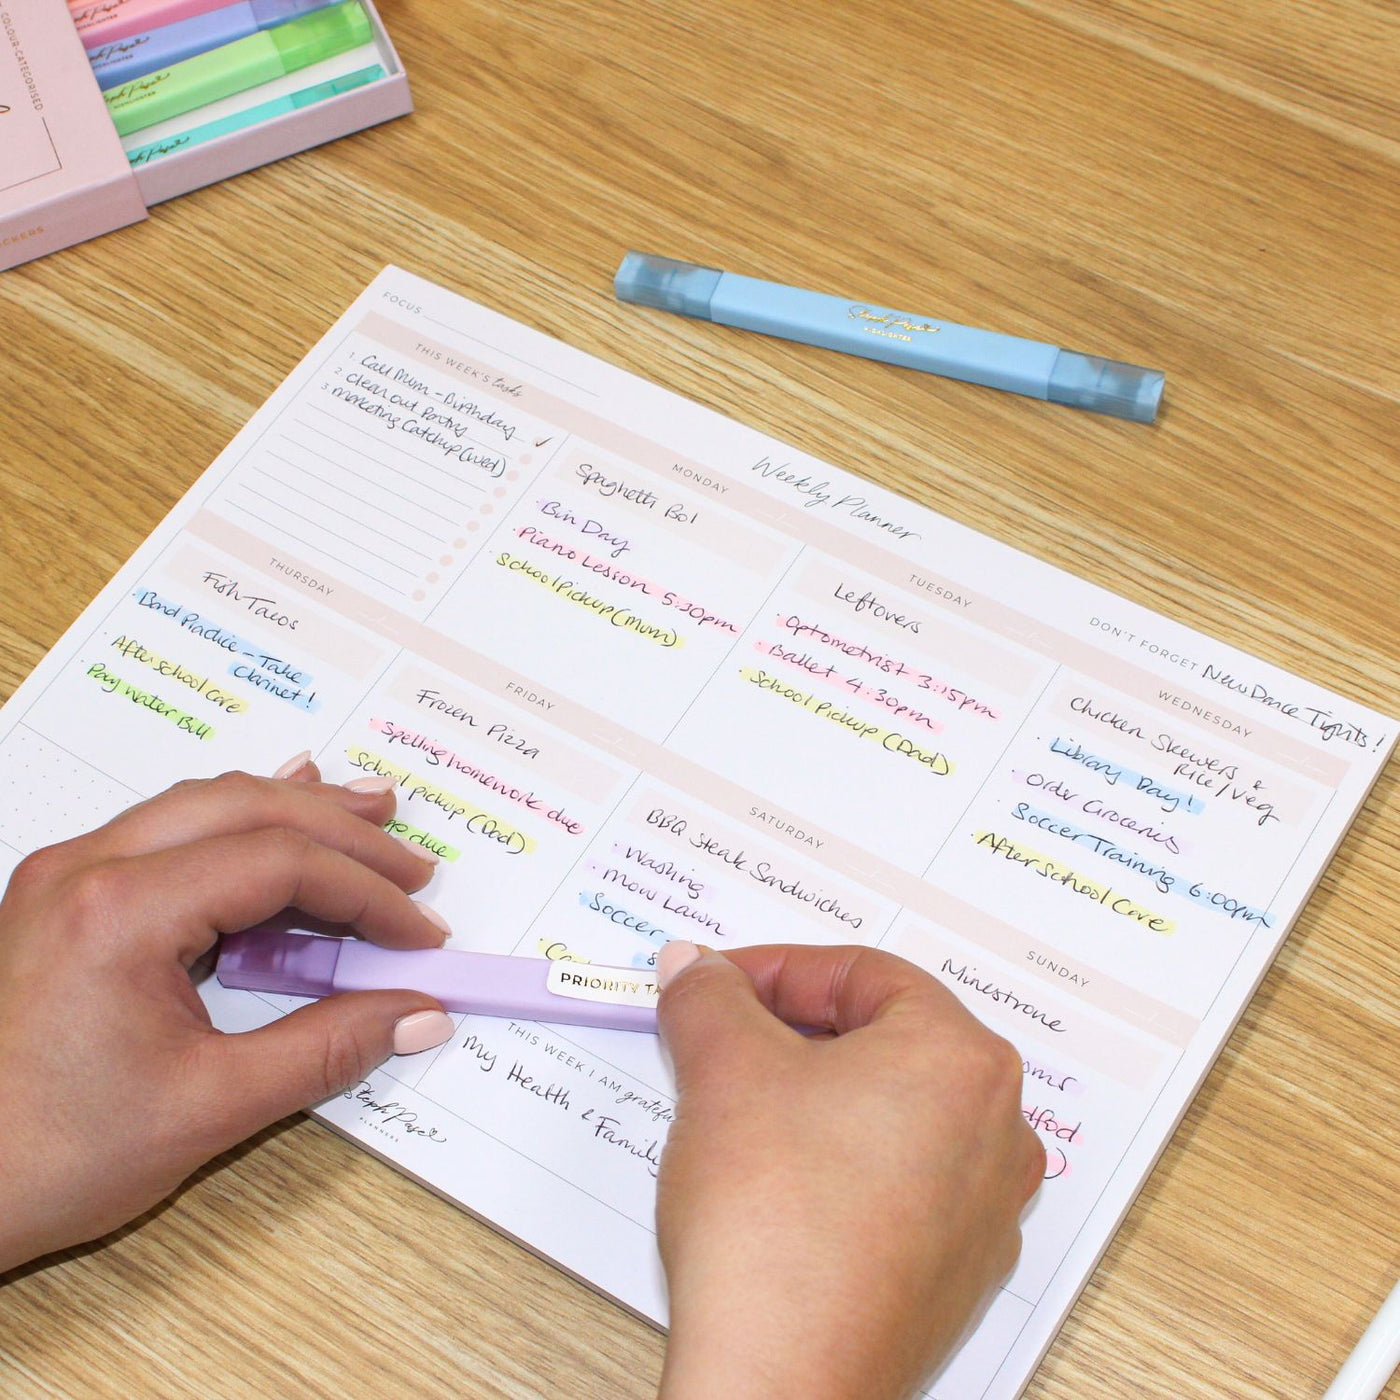 COLOUR-CATEGORISED
Steph Pase
HIGHLIGHTER
Steph Pase
HIGHLIGHTER
Steph Pase
HIGHLIGHTER
Steph Pase
Steph Pase
HIGHLIGHTER
FOCUS
Weekly Planner
DON'T FORGET New Dance Tights!
THIS WEEK'S tasks
1. Call Mum - Birthday
2. Clean out Pantry
3. Marketing Catchup (Wed)
MONDAY
Spaghetti Bol
· Bin Day
· Piano Lesson 5:30pm
· School Pickup (Mum)
TUESDAY
Leftovers
· Optometrist 3:15pm
· Ballet 4:30pm
· School Pickup (Dad)
WEDNESDAY
Chicken Skewers &
Rice/Veg
· Library Day!
· Order Groceries
· Soccer Training 6:00pm
· After School Care
THURSDAY
Fish Tacos
· Band Practice - Take
Clarinet!
· After School Care
· Pay Water Bill
FRIDAY
Frozen Pizza
· Spelling homework due
· School Pickup (Dad)
due
SATURDAY
BBQ Steak Sandwiches
· Washing
· Mow Lawn
· Soccer -
SUNDAY
Minestrone
THIS WEEK I AM grateful
My Health & Family
Steph Pase
PLANNERS
PRIORITY TA